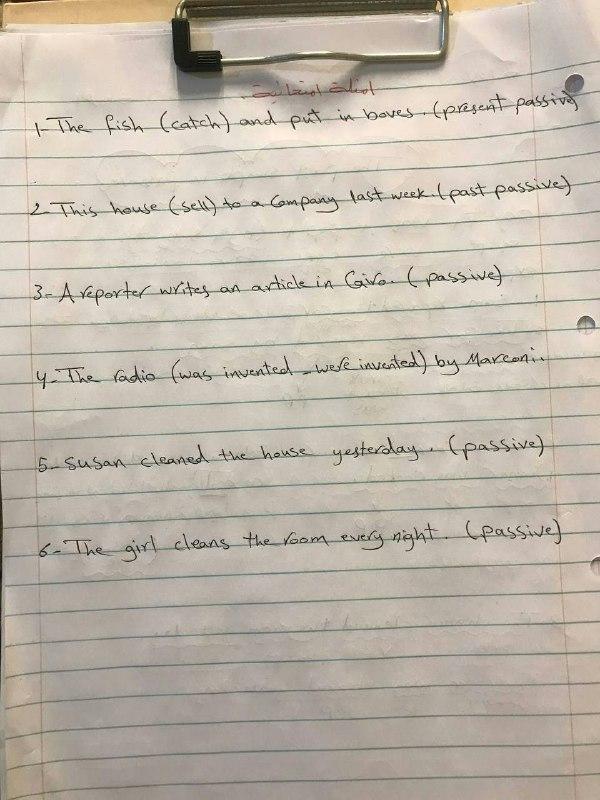 اسئلة امتحانية
1- The fish (catch) and put in boxes. (present passive)
2- This house (sell) to a Company last week. (past passive)
3- A reporter writes an article in Cairo. (passive)
4- The radio (was invented - were invented) by Marconi.
5- Susan cleaned the house yesterday. (passive)
6- The girl cleans the room every night. (passive)